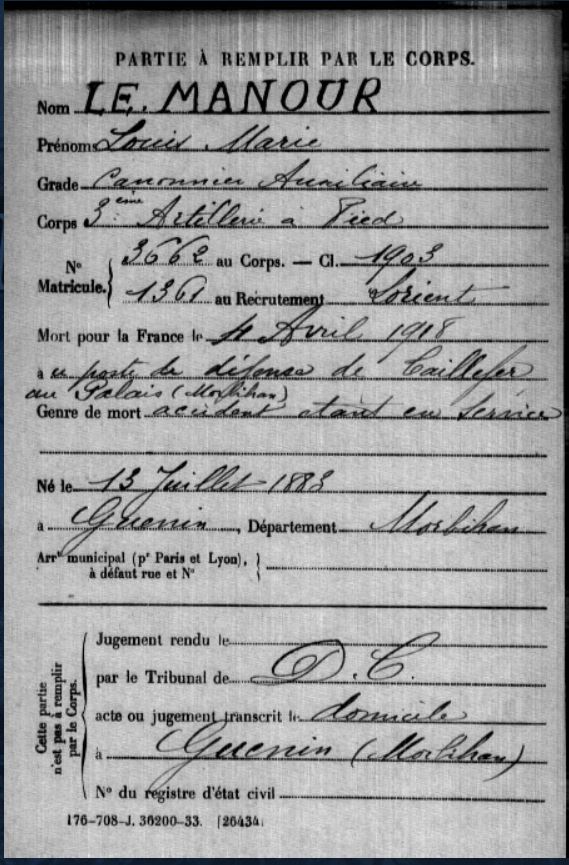 PARTIE À REMPLIR PAR LE CORPS.
Nom LE. MANOUR
Prénoms Louis Marie
Grade Canonnier Auxiliaire
Corps 3ème Artillerie à Pied
3662 au Corps. — Cl. 1903
N° Matricule.
1361 au Recrutement Lorient
Mort pour la France le 4 Avril 1918
à u poste de défense de Taillefer
au Palais (Morbihan)
Genre de mort accident étant en service
Né le 13 Juillet 1883
à Guenin, Département Morbihan
Arrt municipal (pr Paris et Lyon),
à défaut rue et N°
Jugement rendu le
par le Tribunal de D.C.
acte ou jugement transcrit le domicile
à Guenin (Morbihan)
N° du registre d'état civil
Cette partie
n'est pas à remplir
par le Corps.
176-708-J. 36200-33. [26434.